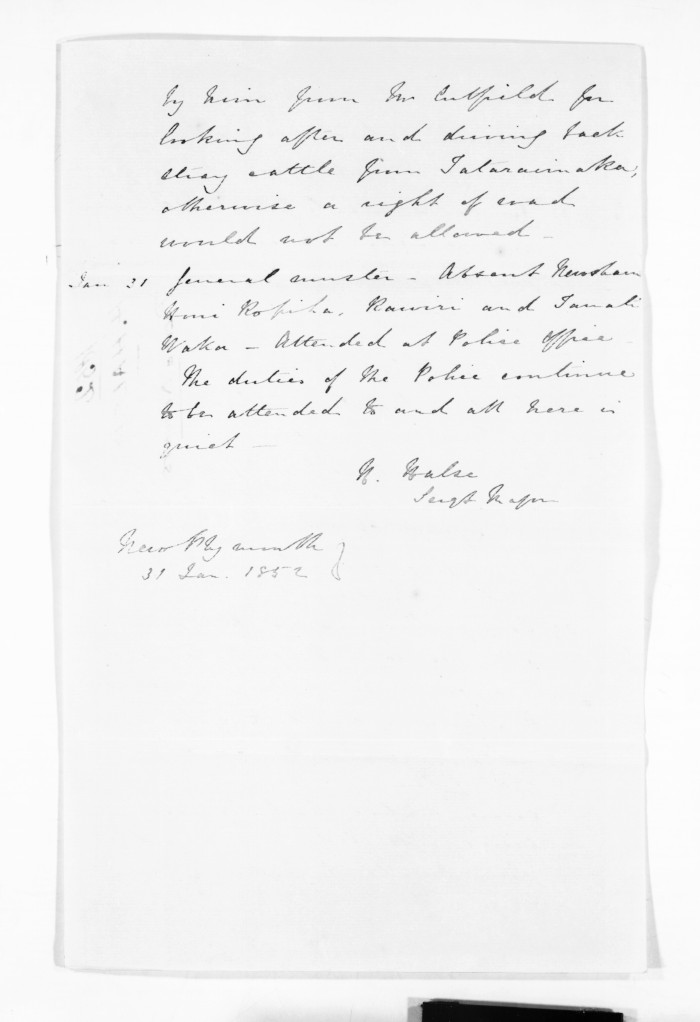 by him from Mr Cutfield for
looking after and driving back
stray cattle from Tataraimaka,
otherwise a right of road
would not be allowed -
Jan 31 General muster - Absent Newsham
Honi Ropiha, Rawiri and Tamati
Waka - Attended at Police Office
The duties of the Police continue
to be attended to and all here is
quiet -
H. Halse
Sergt Major
New Plymouth
31 Jan. 1852